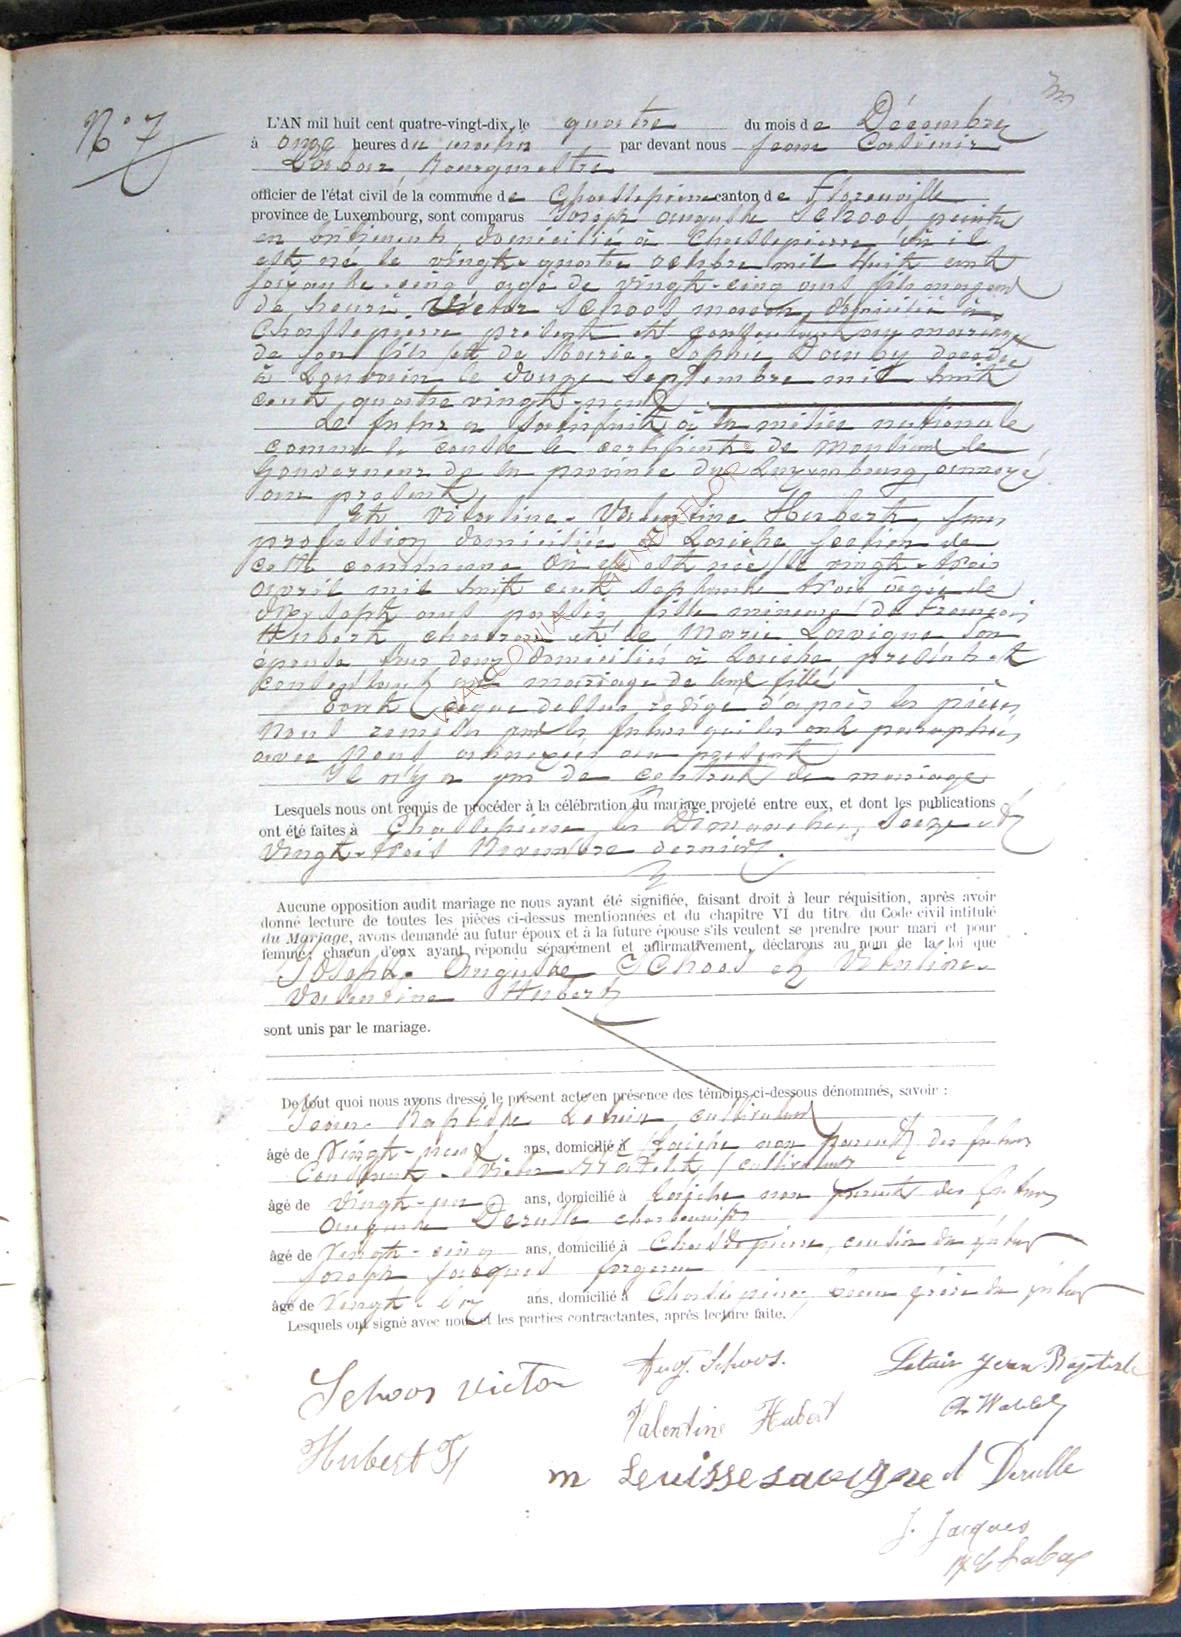 N° 7
L'AN mil huit cent quatre-vingt-dix, le quatre du mois de Décembre
à onze heures du matin par devant nous Jean Casimir
Labar, Bourgmestre
officier de l'état civil de la commune de Chassepierre canton de Florenville
province de Luxembourg, sont comparus Joseph Auguste Schoos peintre
en bâtiments, domicilié à Chassepierre où il
est né le vingt-quatre octobre mil huit cent
soixante-cinq, agé de vingt-cinq ans fils majeur
de henri Victor Schoos domicilié à
Chassepierre présent et consentant au mariage
de son fils et de Marie-Sophie décédée
à Louvain le douze Septembre mil huit
cent quatre vingt-neuf
Le futur a satisfait à la milice nationale
comme le conste le certificat de Monsieur le
Gouverneur de la province du Luxembourg, annexé
au présent
Et Vitaline-Valentine Hubert, sans
profession domiciliée à Laiche section de
cette commune où elle est née le vingt-trois
avril mil huit cent septante trois âgée de
dix-sept ans passés fille mineure de François
Hubert, et de Marie Lavigne son
épouse, tous deux domiciliés à Laiche présents et
consentant au mariage de leur fille
Tout ce que dessus rédigé d'après les pièces
Nous remises par les futurs qui les ont paraphées
avec Nous annexées au présent
Il n'y a pas de contrat de mariage
Lesquels nous ont requis de procéder à la célébration du mariage projeté entre eux, et dont les publications
ont été faites à Chassepierre, les Dimanches, Seize et
Vingt-trois Novembre dernier.
Aucune opposition audit mariage ne nous ayant été signifiée, faisant droit à leur réquisition, après avoir
donné lecture de toutes les pièces ci-dessus mentionnées et du chapitre VI du titre du Code civil intitulé
du Mariage, avons demandé au futur époux et à la future épouse s'ils veulent se prendre pour mari et pour
femme; chacun d'eux ayant répondu séparément et affirmativement, déclarons au nom de la loi que
Joseph-Auguste Schoos et Vitaline-
Valentine Hubert
sont unis par le mariage.
De tout quoi nous avons dressé le présent acte en présence des témoins ci-dessous dénommés, savoir :
Jean-Baptiste cultivateur
âgé de Vingt-neuf ans, domicilié à Laiche non parent des futurs
Constant cultivateur
âgé de vingt-un ans, domicilié à Laiche non parent des futurs
Auguste Derulle
âgé de Vingt-cinq ans, domicilié à Chassepierre, cousin du futur
Joseph Jacques forgeron
âgé de Vingt-six ans, domicilié à Chassepierre, beau frère du futur
Lesquels ont signé avec nous et les parties contractantes, après lecture faite.
Schoos Victor
Aug. Schoos.
Letair Jean Baptiste
Valentine Hubert
Hubert F
m Leuisse Lavigne
A Derulle
J. Jacques
Labar
WALLONIA VENNXAFLOR